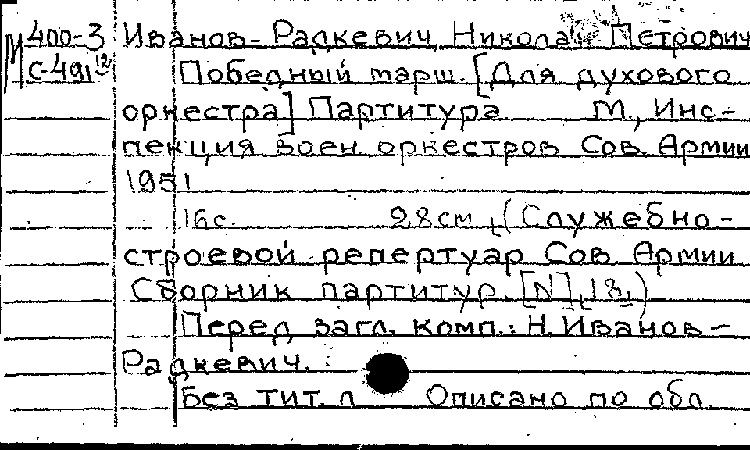 М 400-3 Иванов-Радкевич, Николай Петрович
С-491 12 Победный марш. [Для духового
оркестра] Партитура М., Инс-
пекция воен. оркестров Сов. Армии
1951
16 с. 28 см. (Служебно-
строевой репертуар Сов. Армии
Сборник партитур. [N] 12)
Перед загл. комп.: Н. Иванов-
Радкевич.
Без тит. л. Описано по обл.